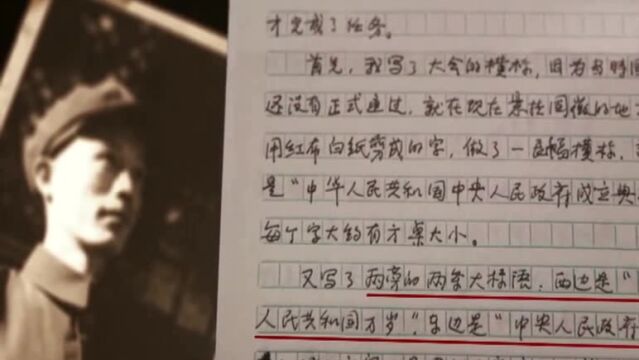 才完成了任务。
首先，我写了大会的横标，因为当时国
还没有正式通过，就在现在国徽的地
用红布白纸剪成的字，做了一 横标，
是“中华人民共和国中央人民政府成立典
每个字大约有方桌大小。
又写了两旁的两条大标语，西边是“
人民共和国万岁”，东边是“中央人民政府